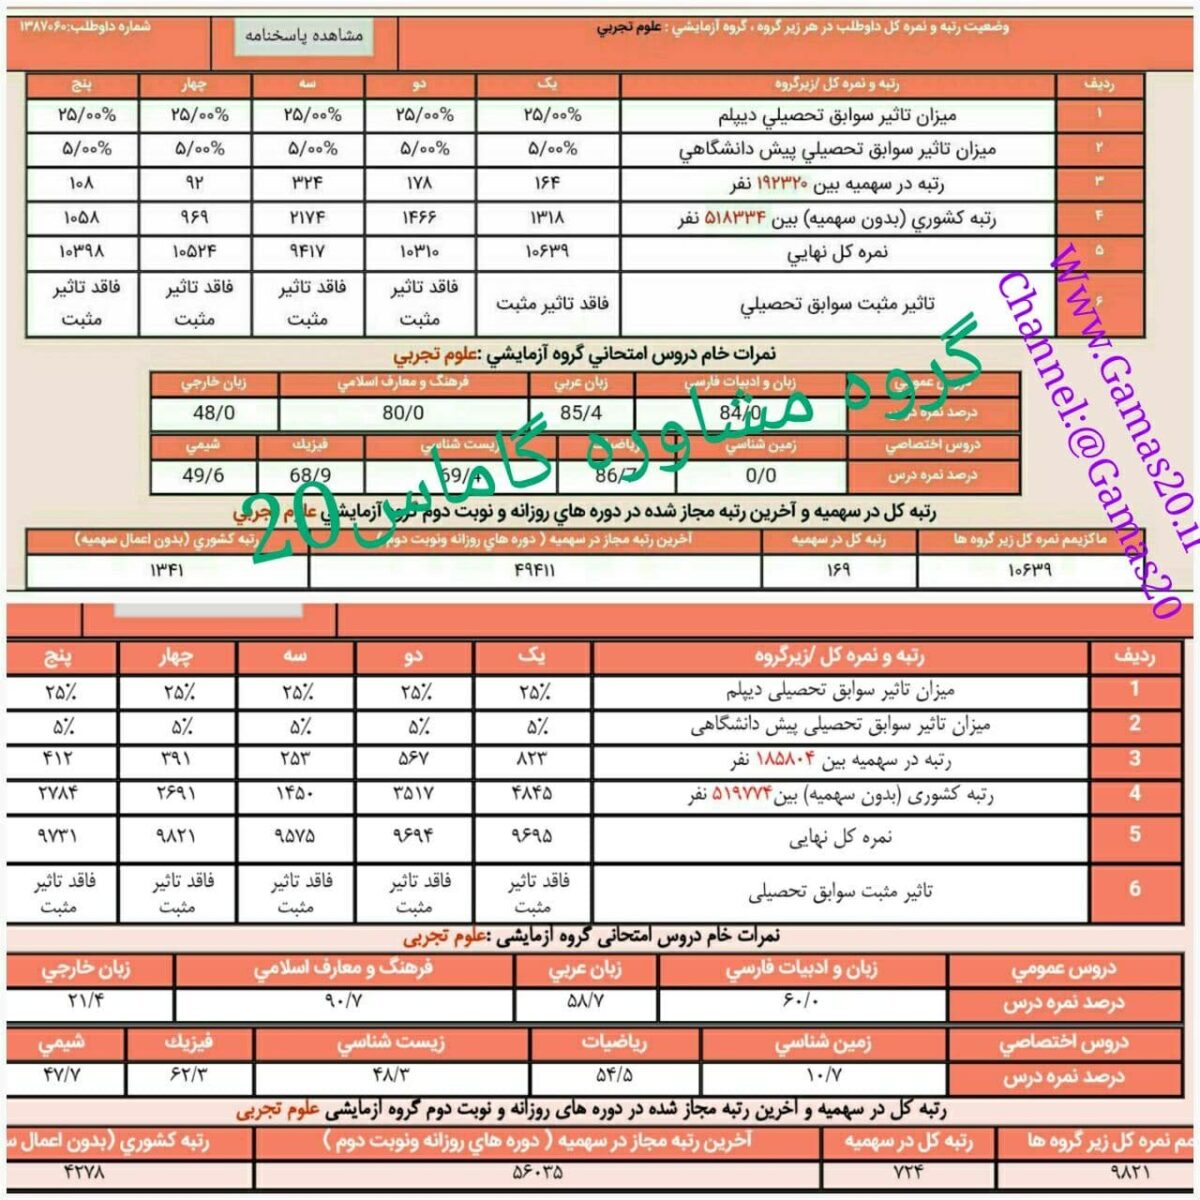 وضعیت رتبه و نمره کل داوطلب در هر زیر گروه ، گروه آزمایشي : علوم تجربي
مشاهده پاسخنامه
شماره داوطلب:۱۳۸۷۰۶۰
ردیف رتبه و نمره کل /زیرگروه یک دو سه چهار پنج
۱ میزان تاثیر سوابق تحصیلي دیپلم ۲۵/۰۰% ۲۵/۰۰% ۲۵/۰۰% ۲۵/۰۰% ۲۵/۰۰%
۲ میزان تاثیر سوابق تحصیلي پیش دانشگاهي ۵/۰۰% ۵/۰۰% ۵/۰۰% ۵/۰۰% ۵/۰۰%
۳ رتبه در سهمیه بین ۱۹۲۳۲۰ نفر ۱۶۴ ۱۷۸ ۳۲۴ ۹۲ ۱۰۸
۴ رتبه کشوري (بدون سهمیه) بین ۵۱۸۳۳۴ نفر ۱۳۱۸ ۱۴۶۶ ۲۱۷۴ ۹۶۹ ۱۰۵۸
۵ نمره کل نهایي ۱۰۶۳۹ ۱۰۳۱۰ ۹۴۱۷ ۱۰۵۲۴ ۱۰۳۹۸
۶ تاثیر مثبت سوابق تحصیلي فاقد تاثیر مثبت فاقد تاثیر مثبت فاقد تاثیر مثبت فاقد تاثیر مثبت فاقد تاثیر مثبت
نمرات خام دروس امتحاني گروه آزمایشي :علوم تجربي
دروس عمومي زبان و ادبیات فارسي زبان عربي فرهنگ و معارف اسلامي زبان خارجي
درصد نمره درس 84/0 85/4 80/0 48/0
دروس اختصاصي زمین شناسي ریاضیات زیست شناسي فیزیك شیمي
درصد نمره درس 0/0 86/7 69/4 68/9 49/6
رتبه کل در سهمیه و آخرین رتبه مجاز شده در دوره هاي روزانه و نوبت دوم گروه آزمایشي علوم تجربي
ماکزیمم نمره کل زیر گروه ها رتبه کل در سهمیه آخرین رتبه مجاز در سهمیه ( دوره هاي روزانه ونوبت دوم ) رتبه کشوري (بدون اعمال سهمیه)
۱۰۶۳۹ ۱۶۹ ۴۹۴۱۱ ۱۳۴۱
گروه مشاوره گاماس20
Www.Gamas20.ir
Channel:@Gamas20
ردیف رتبه و نمره کل /زیرگروه یک دو سه چهار پنج
1 میزان تاثیر سوابق تحصیلی دیپلم ۲۵٪ ۲۵٪ ۲۵٪ ۲۵٪ ۲۵٪
2 میزان تاثیر سوابق تحصیلی پیش دانشگاهی ۵٪ ۵٪ ۵٪ ۵٪ ۵٪
3 رتبه در سهمیه بین ۱۸۵۸۰۴ نفر ۸۲۳ ۵۶۷ ۲۵۳ ۳۹۱ ۴۱۲
4 رتبه کشوری (بدون سهمیه) بین ۵۱۹۷۷۴ نفر ۴۸۴۵ ۳۵۱۷ ۱۴۵۰ ۲۶۹۱ ۲۷۸۴
5 نمره کل نهایی ۹۶۹۵ ۹۶۹۴ ۹۵۷۵ ۹۸۲۱ ۹۷۳۱
6 تاثیر مثبت سوابق تحصیلی فاقد تاثیر مثبت فاقد تاثیر مثبت فاقد تاثیر مثبت فاقد تاثیر مثبت فاقد تاثیر مثبت
نمرات خام دروس امتحانی گروه آزمایشی :علوم تجربی
دروس عمومي زبان و ادبیات فارسي زبان عربي فرهنگ و معارف اسلامي زبان خارجي
درصد نمره درس ۶۰/۰ ۵۸/۷ ۹۰/۷ ۲۱/۴
دروس اختصاصي زمین شناسي ریاضیات زیست شناسي فیزیك شیمي
درصد نمره درس ۱۰/۷ ۵۴/۵ ۴۸/۳ ۶۲/۳ ۴۷/۷
رتبه کل در سهمیه و آخرین رتبه مجاز شده در دوره های روزانه و نوبت دوم گروه آزمایشی علوم تجربی
نمره کل زیر گروه ها رتبه کل در سهمیه آخرین رتبه مجاز در سهمیه ( دوره هاي روزانه ونوبت دوم ) رتبه کشوري (بدون اعمال
۹۸۲۱ ۷۲۴ ۵۶۰۳۵ ۴۲۷۸